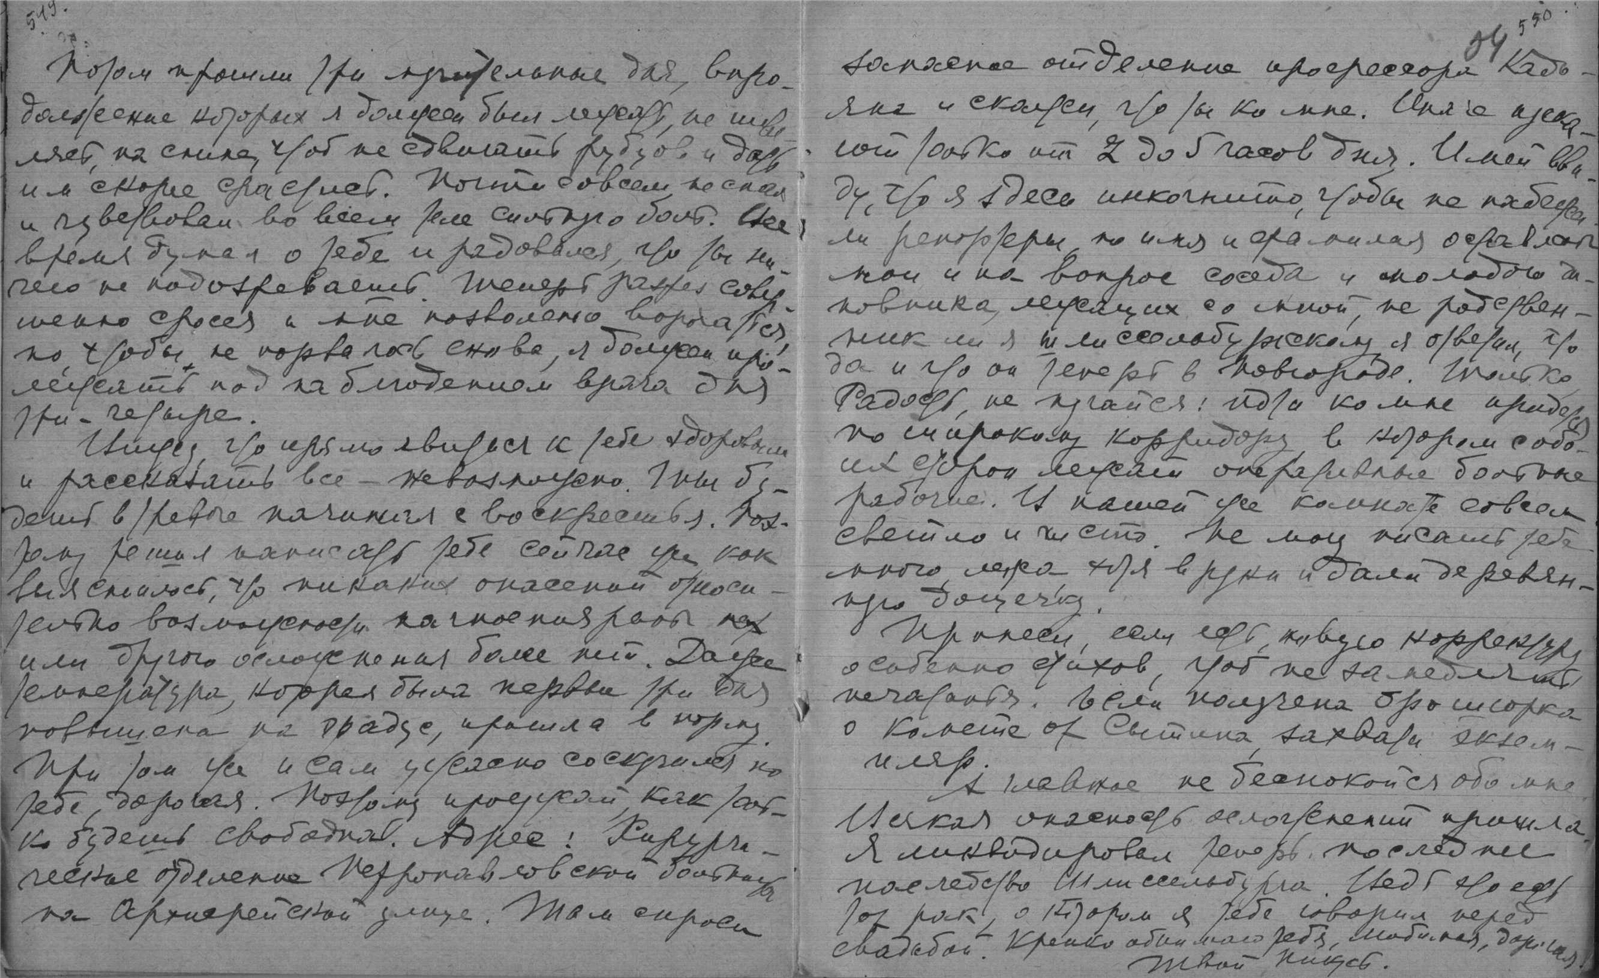 549.
Потом прошли три мучительные дня, впро-
должение которых я должен был лежать, не шеве
лясь, на спине, чтоб не сдвигать рубцов и дать
им скорее срастись. Почти совсем не спал
и чувствовал во всем теле сильную боль. Все
время думал о тебе и радовался, что ты ни-
чего не подозреваешь. Теперь разрез совер-
шенно сросся и мне позволено ворочаться,
но чтобы не порвалось снова, я должен про-
лежать под наблюдением врача дня
три-четыре.
Вижу, что прямо явиться к тебе здоровым
и рассказать все — невозможно. Ты бу-
дешь в тревоге начиная с воскресенья. Поэ-
тому решил написать тебе сейчас же как
выяснилось, что никаких опасений относи-
тельно возможности нагноения раны
или другого осложнения более нет. Даже
температура, которая была первые три дня
повышена на градус, пришла в норму.
При том же и сам ужасно соскучился по
тебе, дорогая. Поэтому приезжай, как толь-
ко будешь свободна. Адрес: Хирурги-
ческое отделение Петропавловской больницы
на Архиерейской улице. Там спроси
550
84
запасное отделение профессора Кадь-
яна и скажи, что ты ко мне. Иначе пуска-
ют только от 2 до 5 часов дня. Имей вви-
ду, что я здесь инкогнито, чтобы не набежа-
ли репортеры, но имя и фамилия оставлены
мои и на вопрос соседа и молодого чи-
новника, лежащих со мной, не родствен-
ник ли я шлиссельбуржскому я ответил, что
да и что он теперь в Новгороде. Только,
Радость, не пугайся: идти ко мне придется
по широкому корридору, в котором с обо-
их сторон лежат оперативные больные
рабочие. В нашей же комнате совсем
светло и чисто. Не могу писать тебе
много, лежа, хотя в руки и дали деревян-
ную дощечку.
Принеси, если есть, новую корректуру
особенно стихов, чтоб не замедлять
печатанья. Если получена брошюрка
о комете от Сытина, захвати экзем-
пляр.
А главное не беспокойся обо мне.
Всякая опасность осложнений прошла.
Я ликвидировал теперь последнее
наследство Шлиссельбурга. Ведь это есть
тот рак, о котором я тебе говорил перед
свадьбой. Крепко обнимаю тебя, любимая, дорогая!
Твой